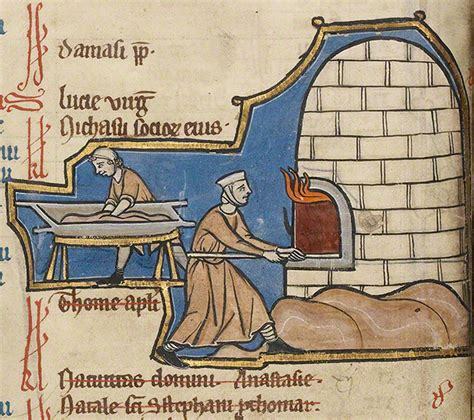 damasi pp.
Lucie virg
Nichasii socioꝝ eius
Thome apli
Natiuitas domini. Anastasie.
Natale sci Stephani pthomar.